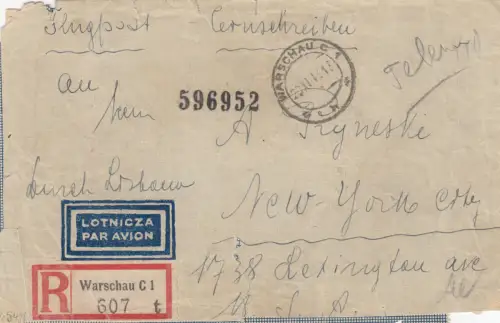 Flugpost Einschreiben
WARSCHAU C 1
an
Herrn
596952
A.
Durch Lisbona
New-York City
LOTNICZA
PAR AVION
1738 Lexington ave
R Warschau C 1
607 t
U. S. A.